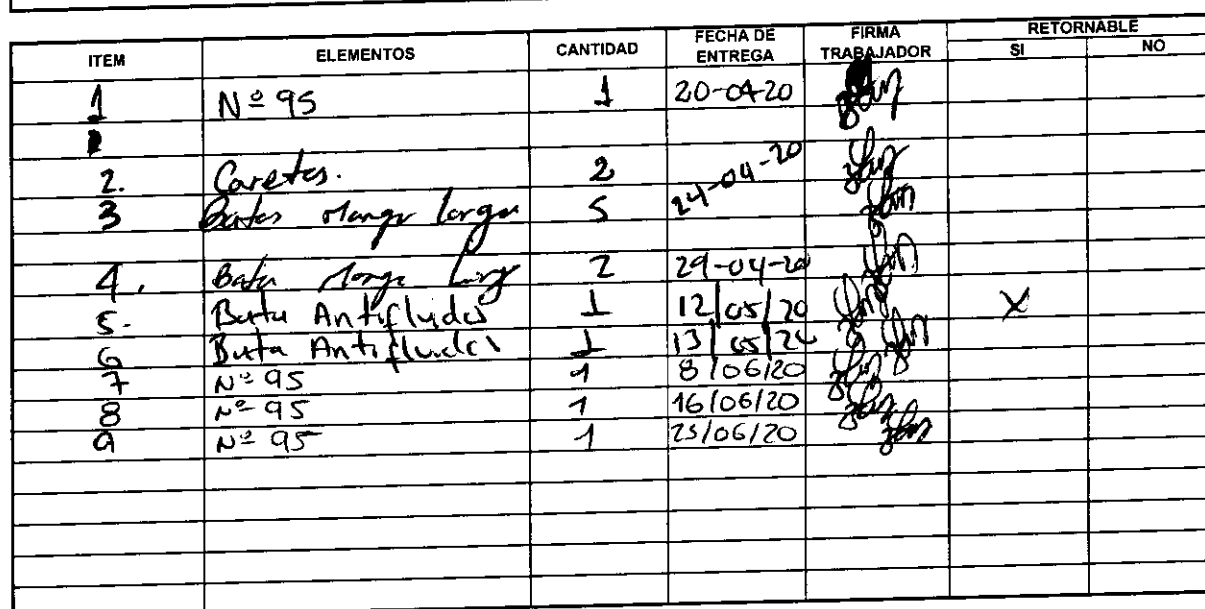 ITEM ELEMENTOS CANTIDAD FECHA DE ENTREGA FIRMA TRABAJADOR RETORNABLE SI NO
1 Nº 95 1 20-04-20
2. Caretas. 2 24-04-20
3 Batas Manga larga 5
4. Bata Manga larg 2 29-04-20
5- Bata Antifluidos 1 12/05/20 X
6 Bata Antifluidos 1 13/05/20
7 Nº 95 1 8/06/20
8 Nº 95 1 16/06/20
9 Nº 95 1 /06/20